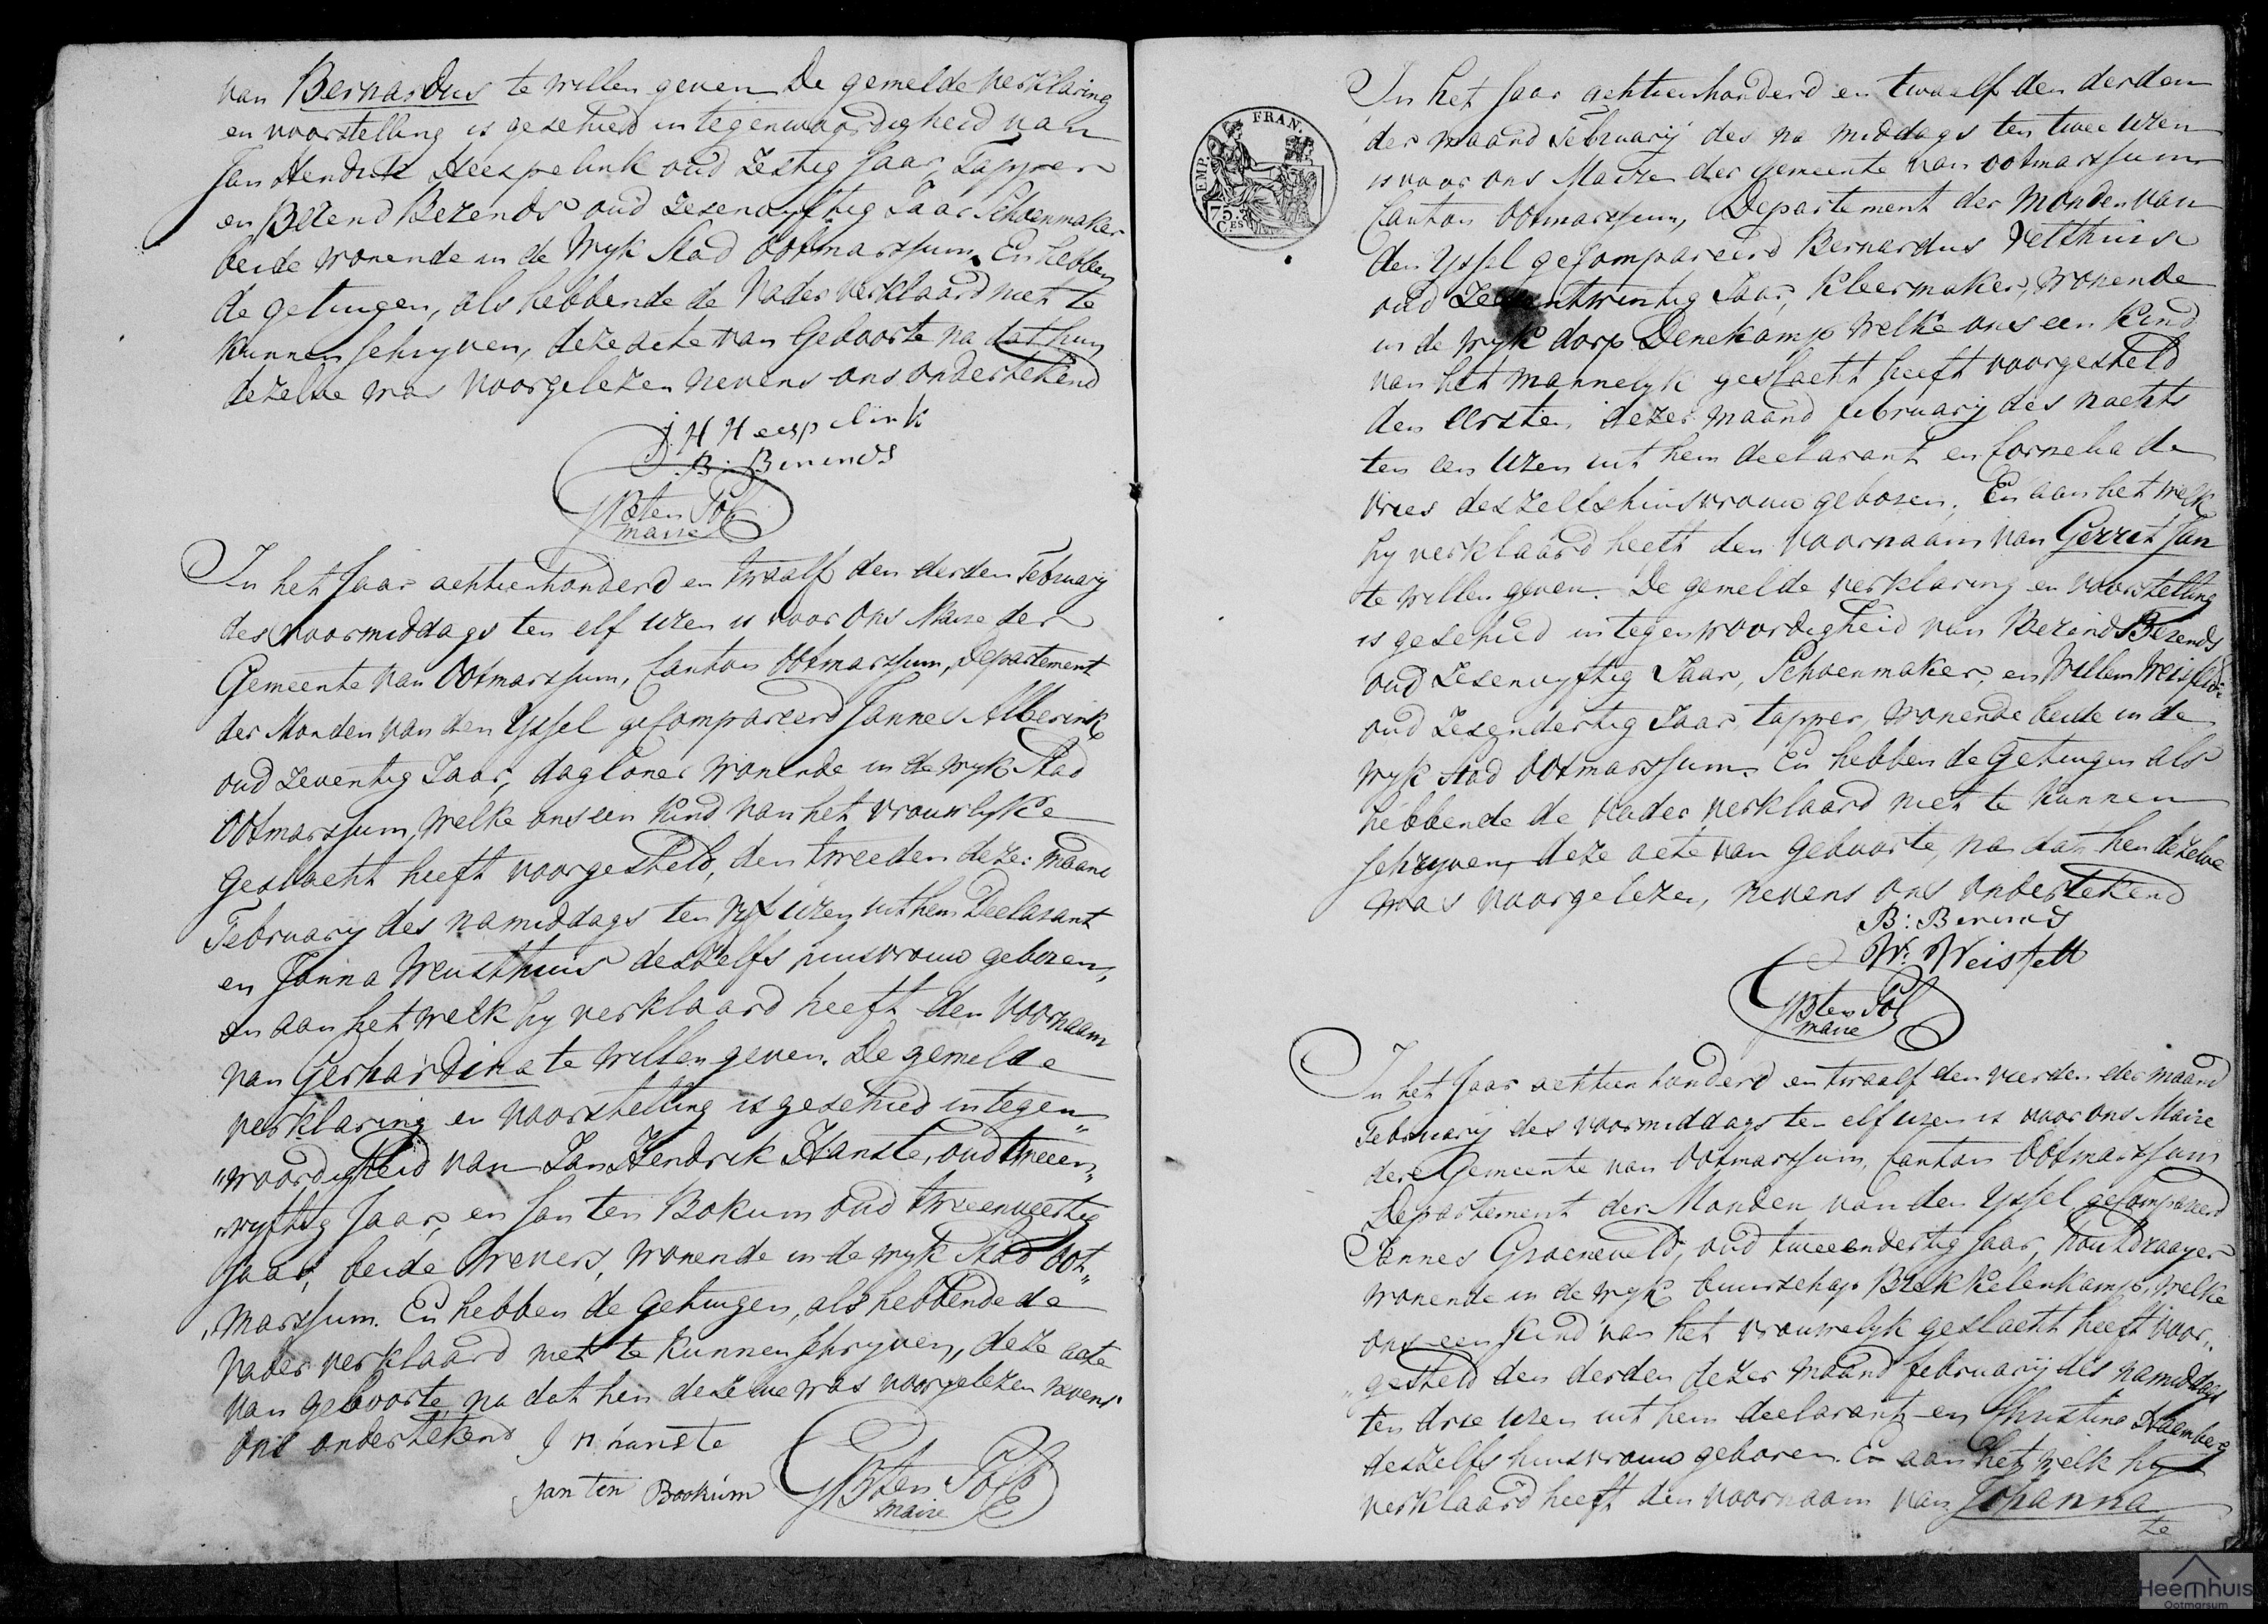 van Bernardus te willen geven De gemelde verklaring
en voorstelling is geschied in tegenwoordigheid van
Jan Hendrik Heespelink oud Zestig Jaar, Tapper
en Berend Berends oud zesenvyftig Jaar Schoenmaker
beide wonende in de Wyk Stad Ootmarssum. En hebben
de getuigen, als hebbende de Vader verklaard niet te
kunnen schryven, deze acte van Geboorte na dat hun
dezelve was voorgelezen nevens ons ondertekend
J H Heespelink
B: Berends
ten Pol
maire
In het Jaar achtienhonderd en twaalf den derden February
des voormiddags ten elf uren is voor Ons Maire der
Gemeente van Ootmarssum, Canton Ootmarssum, Departement
der Monden van den Yssel gecompareerd Jannes Alberink
oud zeventig Jaar, dagloner wonende in de wyk Stad
Ootmarssum, welke ons een Kind van het vrouwlyke
Geslacht heeft voorgesteld, den tweeden dezer maand
February des namiddags ten vyf uren uit hem Declarant
en Janna Weusthuis deszelfs huisvrouw geboren,
en aan het welk hy verklaard heeft den Voornaam
van Gerhardina te willen geven. De gemelde
verklaring en voorstelling is geschied in tegen„
„woordigheid van Jan Hendrik Hanste, oud tweeen„
„vyftig Jaar, en Jan ten Bokum oud tweenveertig
Jaar, beide wevers, wonende in de wyk Stad Oot„
„marssum. En hebben de getuigen, als hebbende de
Vader verklaard niet te kunnen schryven, deze acte
van geboorte, na dat hen dezelve was voorgelezen nevens
Ons ondertekend J H hanste
Jan ten Bookum
ten Pol
maire
EMP. FRAN.
75.
CES
In het Jaar achtienhonderd en twaalf den derden
der maand February des na middags ten twee uren
is voor ons Maire der Gemeente van ootmarssum
Canton Ootmarssum, Departement der Monden van
den Yssel gecompareerd Bernardus Velthuis
oud Jaar, Kleermaker, wonende
in de Wyk dorp Denekamp welke ons een Kind
van het mannelyk geslacht heeft voorgesteld
den Eersten dezer maand february des nachts
ten een Uren uit hem declarant en Cornelia de
Vries deszelfs huisvrouw geboren, En aan het welk
hy verklaard heeft den Voornaam van Gerrit Jan
te willen geven. De gemelde verklaring en voorstelling
is geschied in tegenwoordigheid van Berend Berends
oud zesenvyftig Jaar, Schoenmaker, en Willem Weisfeldt
oud zesendertig Jaar, tapper, wonende beide in de
wyk Stad Ootmarssum. En hebben de getuigen als
hebbende de Vader verklaard niet te kunnen
schryven, deze acte van geboorte, na dat hen dezelve
was voorgelezen, nevens ons ondertekend
B: Berends
W: Weisfelt
ten Pol
maire
In het Jaar achtien honderd en twaalf den vierden der maand
February des voormiddags ten elf uren is voor ons Maire
der Gemeente van Ootmarssum, Canton Ootmarssum
Departement der Monden van den Yssel gecompareerd
Jannes Groeneveld, oud tweeendertig Jaar, houtdraayer
wonende in de wyk buurschap Brekkelenkamp, welke
ons een Kind van het vrouwelyk geslacht heeft voor„
„gesteld den derden dezer maand february des namiddags
ten drie uren uit hem declarant en Christina
deszelfs huisvrouw geboren. En aan het welk hy
verklaard heeft den voornaam van Johanna
te
Heemhuis
Ootmarsum